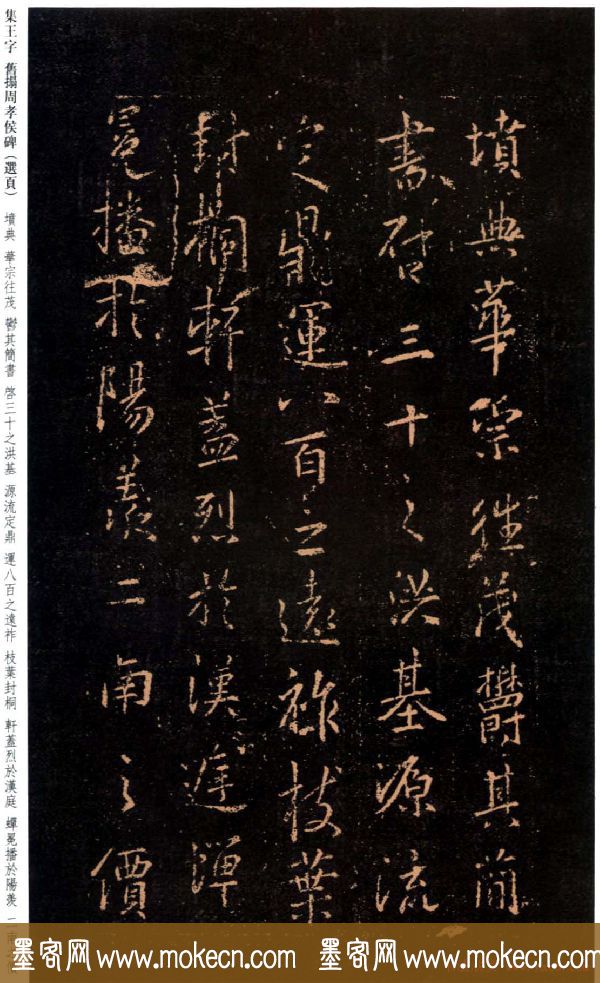 墳典華宗往茂鬱其簡
書啓三十之洪基源流
定鼎運八百之遠祚枝葉
封桐軒蓋烈於漢庭蟬
冕播於陽羨二南之價
集王字 舊搨周孝侯碑(選頁) 墳典 華宗往茂 鬱其簡書 啓三十之洪基 源流定鼎 運八百之遠祚 枝葉封桐 軒蓋烈於漢庭 蟬冕播於陽羨
墨客网 www.mokecn.com 墨客网 www.mokecn.com